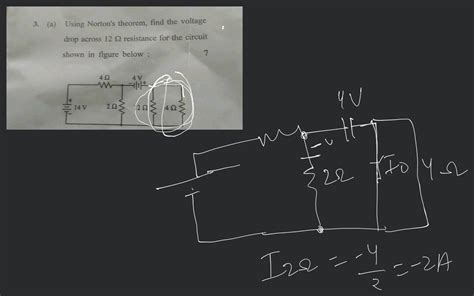 3. (a) Using Norton's theorem, find the voltage
drop across 12 Ω resistance for the circuit
shown in figure below : 7
4 Ω 4 V
14 V 2 Ω 2 Ω 4 Ω
4V
-V
2Ω I0 4Ω
I2Ω = -4/2 = -2A